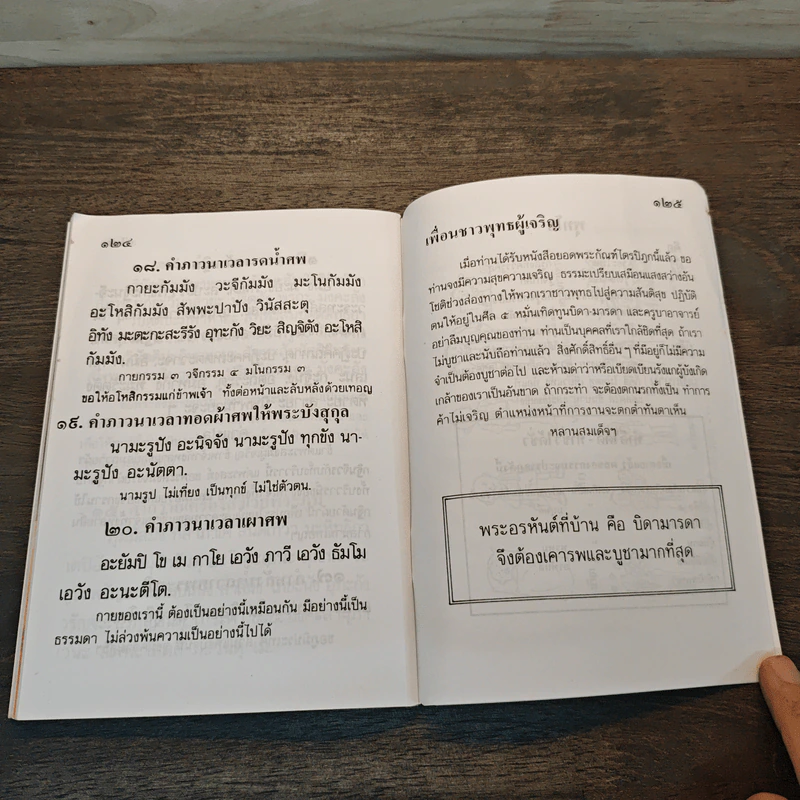 ๑๒๔
๑๘. คำภาวนาเวลารดน้ำศพ
กายะกัมมัง วะจีกัมมัง มะโนกัมมัง
อะโหสิกัมมัง สัพพะปาปัง วินัสสะตุ
อิทัง มะตะกะสะรีรัง อุทะกัง วิยะ สิญจิตัง อะโหสิ
กัมมัง.
กายกรรม ๓ วจีกรรม ๔ มโนกรรม ๓
ขอให้อโหสิกรรมแก่ข้าพเจ้า ทั้งต่อหน้าและลับหลังด้วยเทอญ
๑๙. คำภาวนาเวลาทอดผ้าศพให้พระบังสุกุล
นามะรูปัง อะนิจจัง นามะรูปัง ทุกขัง นา-
มะรูปัง อะนัตตา.
นามรูป ไม่เที่ยง เป็นทุกข์ ไม่ใช่ตัวตน.
๒๐. คำภาวนาเวลาเผาศพ
อะยัมปิ โข เม กาโย เอวัง ภาวี เอวัง ธัมโม
เอวัง อะนะตีโต.
กายของเรานี้ ต้องเป็นอย่างนี้เหมือนกัน มีอย่างนี้เป็น
ธรรมดา ไม่ล่วงพ้นความเป็นอย่างนี้ไปได้
๑๒๕
เพื่อนชาวพุทธผู้เจริญ
เมื่อท่านได้รับหนังสือยอดพระกัณฑ์ไตรปิฎกนี้แล้ว ขอ
ท่านจงมีความสุขความเจริญ ธรรมะเปรียบเสมือนแสงสว่างอัน
โชติช่วงส่องทางให้พวกเราชาวพุทธไปสู่ความสันติสุข ปฏิบัติ
ตนให้อยู่ในศีล ๕ หมั่นเทิดทูนบิดา-มารดา และครูบาอาจารย์
อย่าลืมบุญคุณของท่าน ท่านเป็นบุคคลที่เราใกล้ชิดที่สุด ถ้าเรา
ไม่บูชาและนับถือท่านแล้ว สิ่งศักดิ์สิทธิ์อื่นๆที่มีอยู่ก็ไม่มีความ
จำเป็นต้องบูชาต่อไป และห้ามด่าว่าหรือเบียดเบียนรังแกผู้บังเกิด
เกล้าของเราเป็นอันขาด ถ้ากระทำ จะต้องตกนรกทั้งเป็น ทำการ
ค้าไม่เจริญ ตำแหน่งหน้าที่การงานจะตกต่ำทันตาเห็น
หลานสมเด็จฯ
พระอรหันต์ที่บ้าน คือ บิดามารดา
จึงต้องเคารพและบูชามากที่สุด